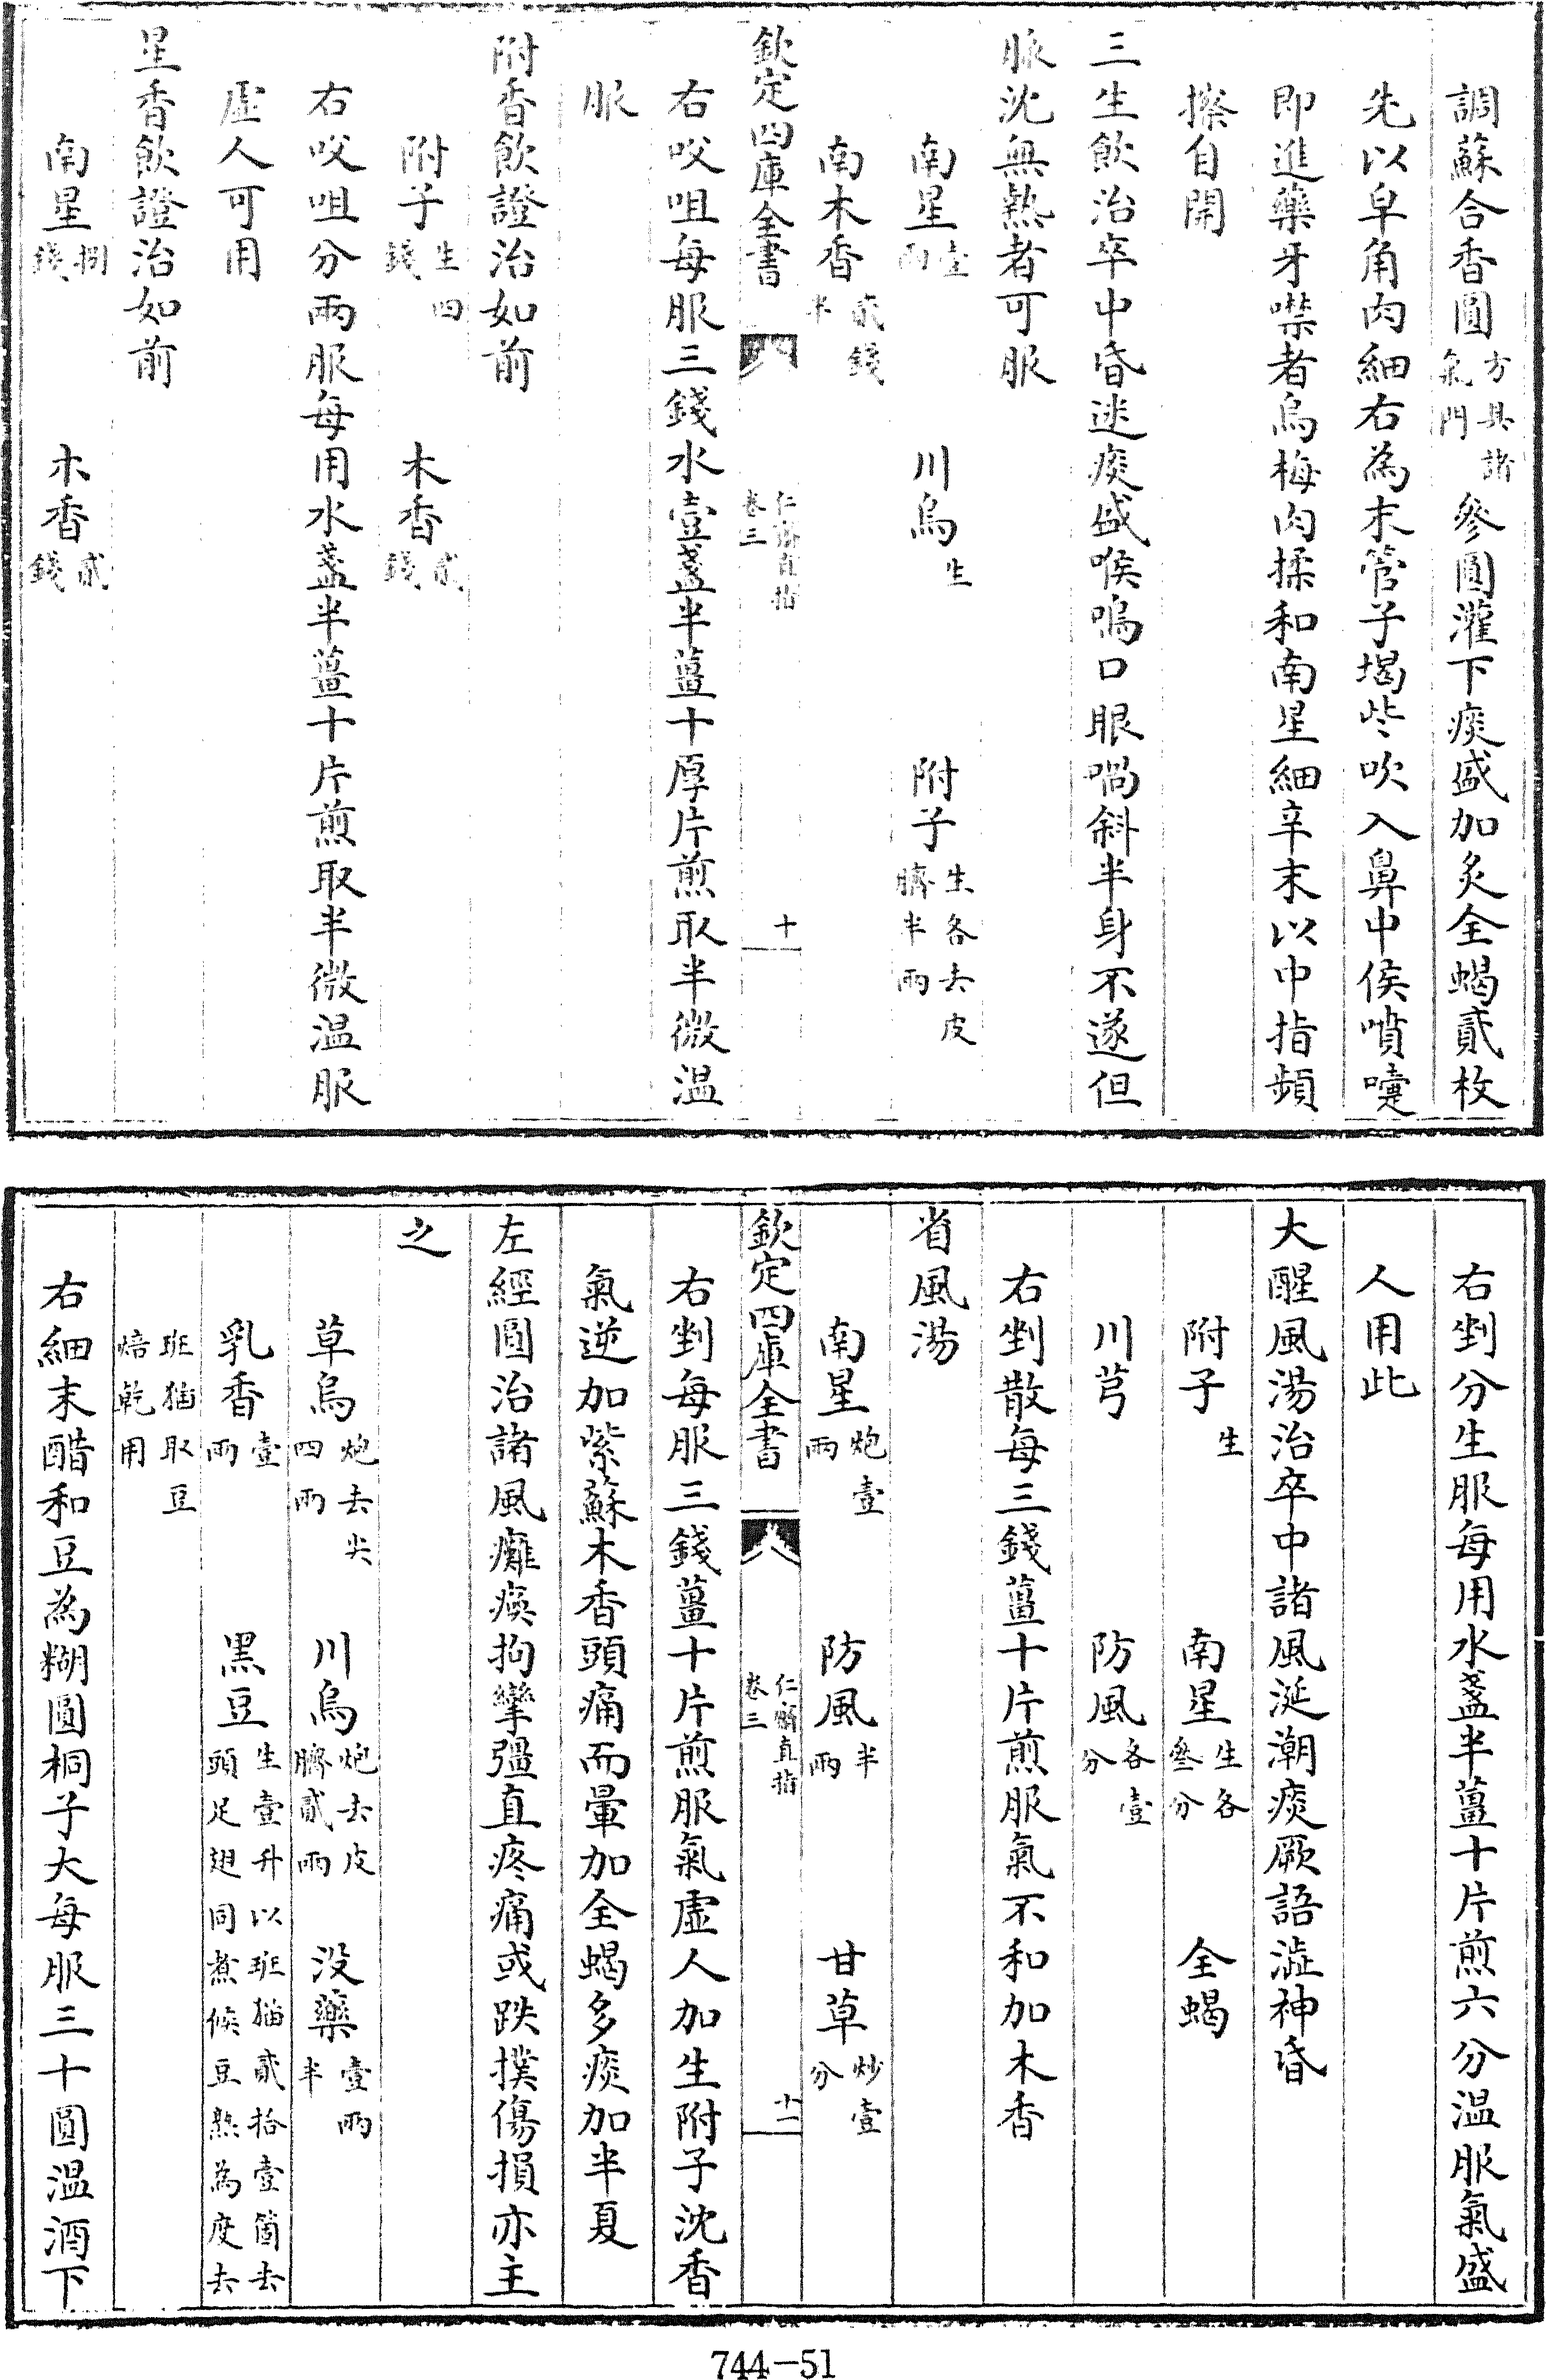 調蘇合香圓方具諸氣門參圓灌下痰盛加炙全蝎貳枚
先以皁角肉細右為末管子堨些吹入鼻中侯噴嚏
即進藥牙噤者烏梅肉揉和南星細辛末以中指頻
擦自開
三生飲治卒中昏迷痰盛喉鳴口眼喎斜半身不遂但
脉沈無熱者可服
南星壹兩 川烏生 附子生各去皮臍半兩
南木香貳錢半
欽定四庫全書 仁齋直指卷三 十
右㕮咀每服三錢水壹盞半薑十厚片煎取半微温
服
附香飲證治如前
附子生四錢 木香貳錢
右㕮咀分兩服每用水盞半薑十片煎取半微温服
虛人可用
星香飲證治如前
南星捌錢 木香貳錢
右剉分生服每用水盞半薑十片煎六分温服氣盛
人用此
大醒風湯治卒中諸風涎潮痰厥語澁神昏
附子生 南星生各叄分 全蝎
川芎 防風各壹分
右剉散每三錢薑十片煎服氣不和加木香
省風湯
南星炮壹兩 防風半兩 甘草炒壹分
欽定四庫全書 仁齋直指卷三 十一
右剉每服三錢薑十片煎服氣虛人加生附子沈香
氣逆加紫蘇木香頭痛而暈加全蝎多痰加半夏
左經圓治諸風癱瘓拘攣彊直疼痛或跌撲傷損亦主
之
草烏炮去尖四兩 川烏炮去皮臍貳兩 没藥壹兩半
乳香壹兩 黑豆生壹升以斑猫貳拾壹箇去頭足翅同煮候豆熟為度去
斑猫取豆焙乾用
右細末醋和豆為糊圓桐子大每服三十圓温酒下
744-51